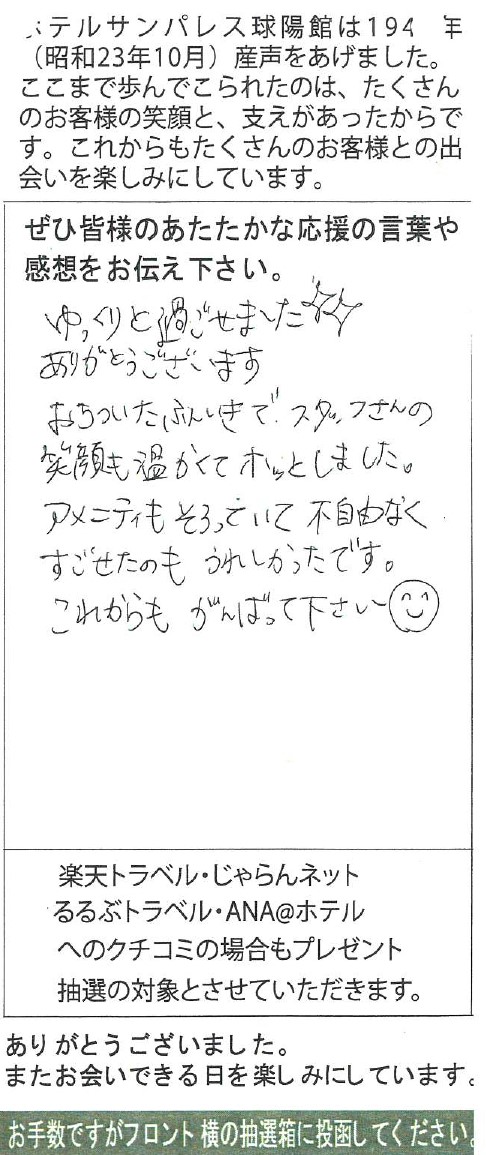 ホテルサンパレス球陽館は194 年
（昭和23年10月）産声をあげました。
ここまで歩んでこられたのは、たくさん
のお客様の笑顔と、支えがあったからで
す。これからもたくさんのお客様との出
会いを楽しみにしています。
ぜひ皆様のあたたかな応援の言葉や
感想をお伝え下さい。
ゆっくりと過ごせました
ありがとうございます
おちついたふんいきで、スタッフさんの
笑顔も温かくてホッとしました。
アメニティもそろっていて不自由なく
すごせたのも うれしかったです。
これからも がんばって下さい
楽天トラベル・じゃらんネット
るるぶトラベル・ANA@ホテル
へのクチコミの場合もプレゼント
抽選の対象とさせていただきます。
ありがとうございました。
またお会いできる日を楽しみにしています。
お手数ですがフロント横の抽選箱に投函してください。